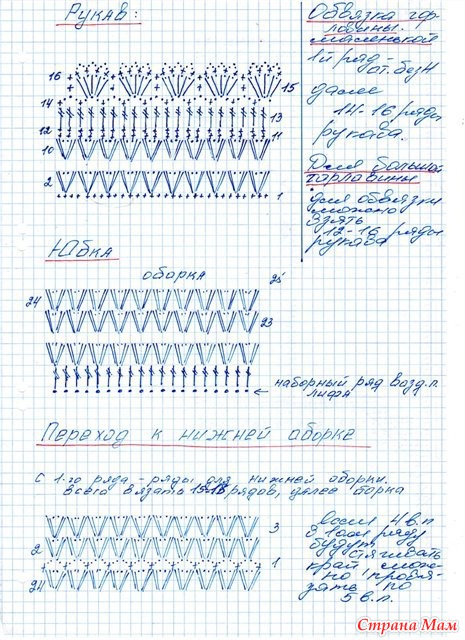 Рукав:
16
15
14
13
12
11
10
2
1
Обвязка гор-
ловины.
маленькой
1й ряд -
ст. без Н
далее
14-16 ряды
рукава.
Для большой
горловины
для обвязки
можно
взять
12-16 ряды
рукава
Юбка
оборка
25
24
23
наборный ряд возд.п.
лифа
Переход к нижней оборке
С 1-го ряда - ряды для нижней оборки.
всего вязать рядов, далее
3
2
1
24
Если 4 в.п
в 1ом ряду
будут
стягивать
край мож-
но провя-
зать по
5 в.п.
Страна Мам